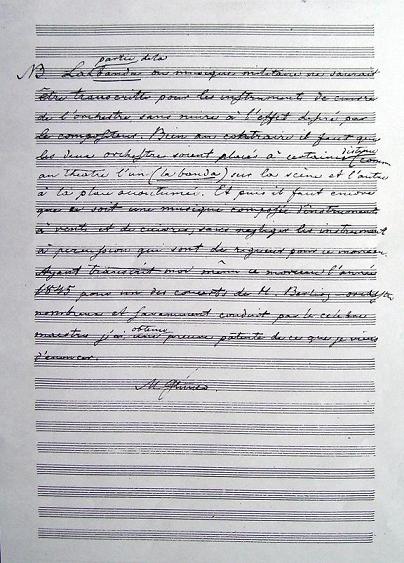 partie de la
NB La banda ou musique militaire ne saurait
être transcritte pour les instruments de cuivre
de l'orchestre sans nuire à l'effet désiré par
le compositeur. Bien au contraire il faut que
les deux orchestre soient placés à certaine distance comme
au theatre l'un (la banda) sur la scène et l'autre
à la place accoutumée. Et puis il faut encore
que ce soit une musique composée d'instruments
à vent et de cuivre, sans negliger les instrument
à percussion qui sont de rigueur pour ce morceau.
Ayant transcrit moi même ce morceau l'année
1845 pour un des concerts de M. Berlioz orchestre
nombreux et savamment conduit par le celèbre
maestro j'ai obtenu une preuve patente de ce que je viens
d'enoncer.
M.